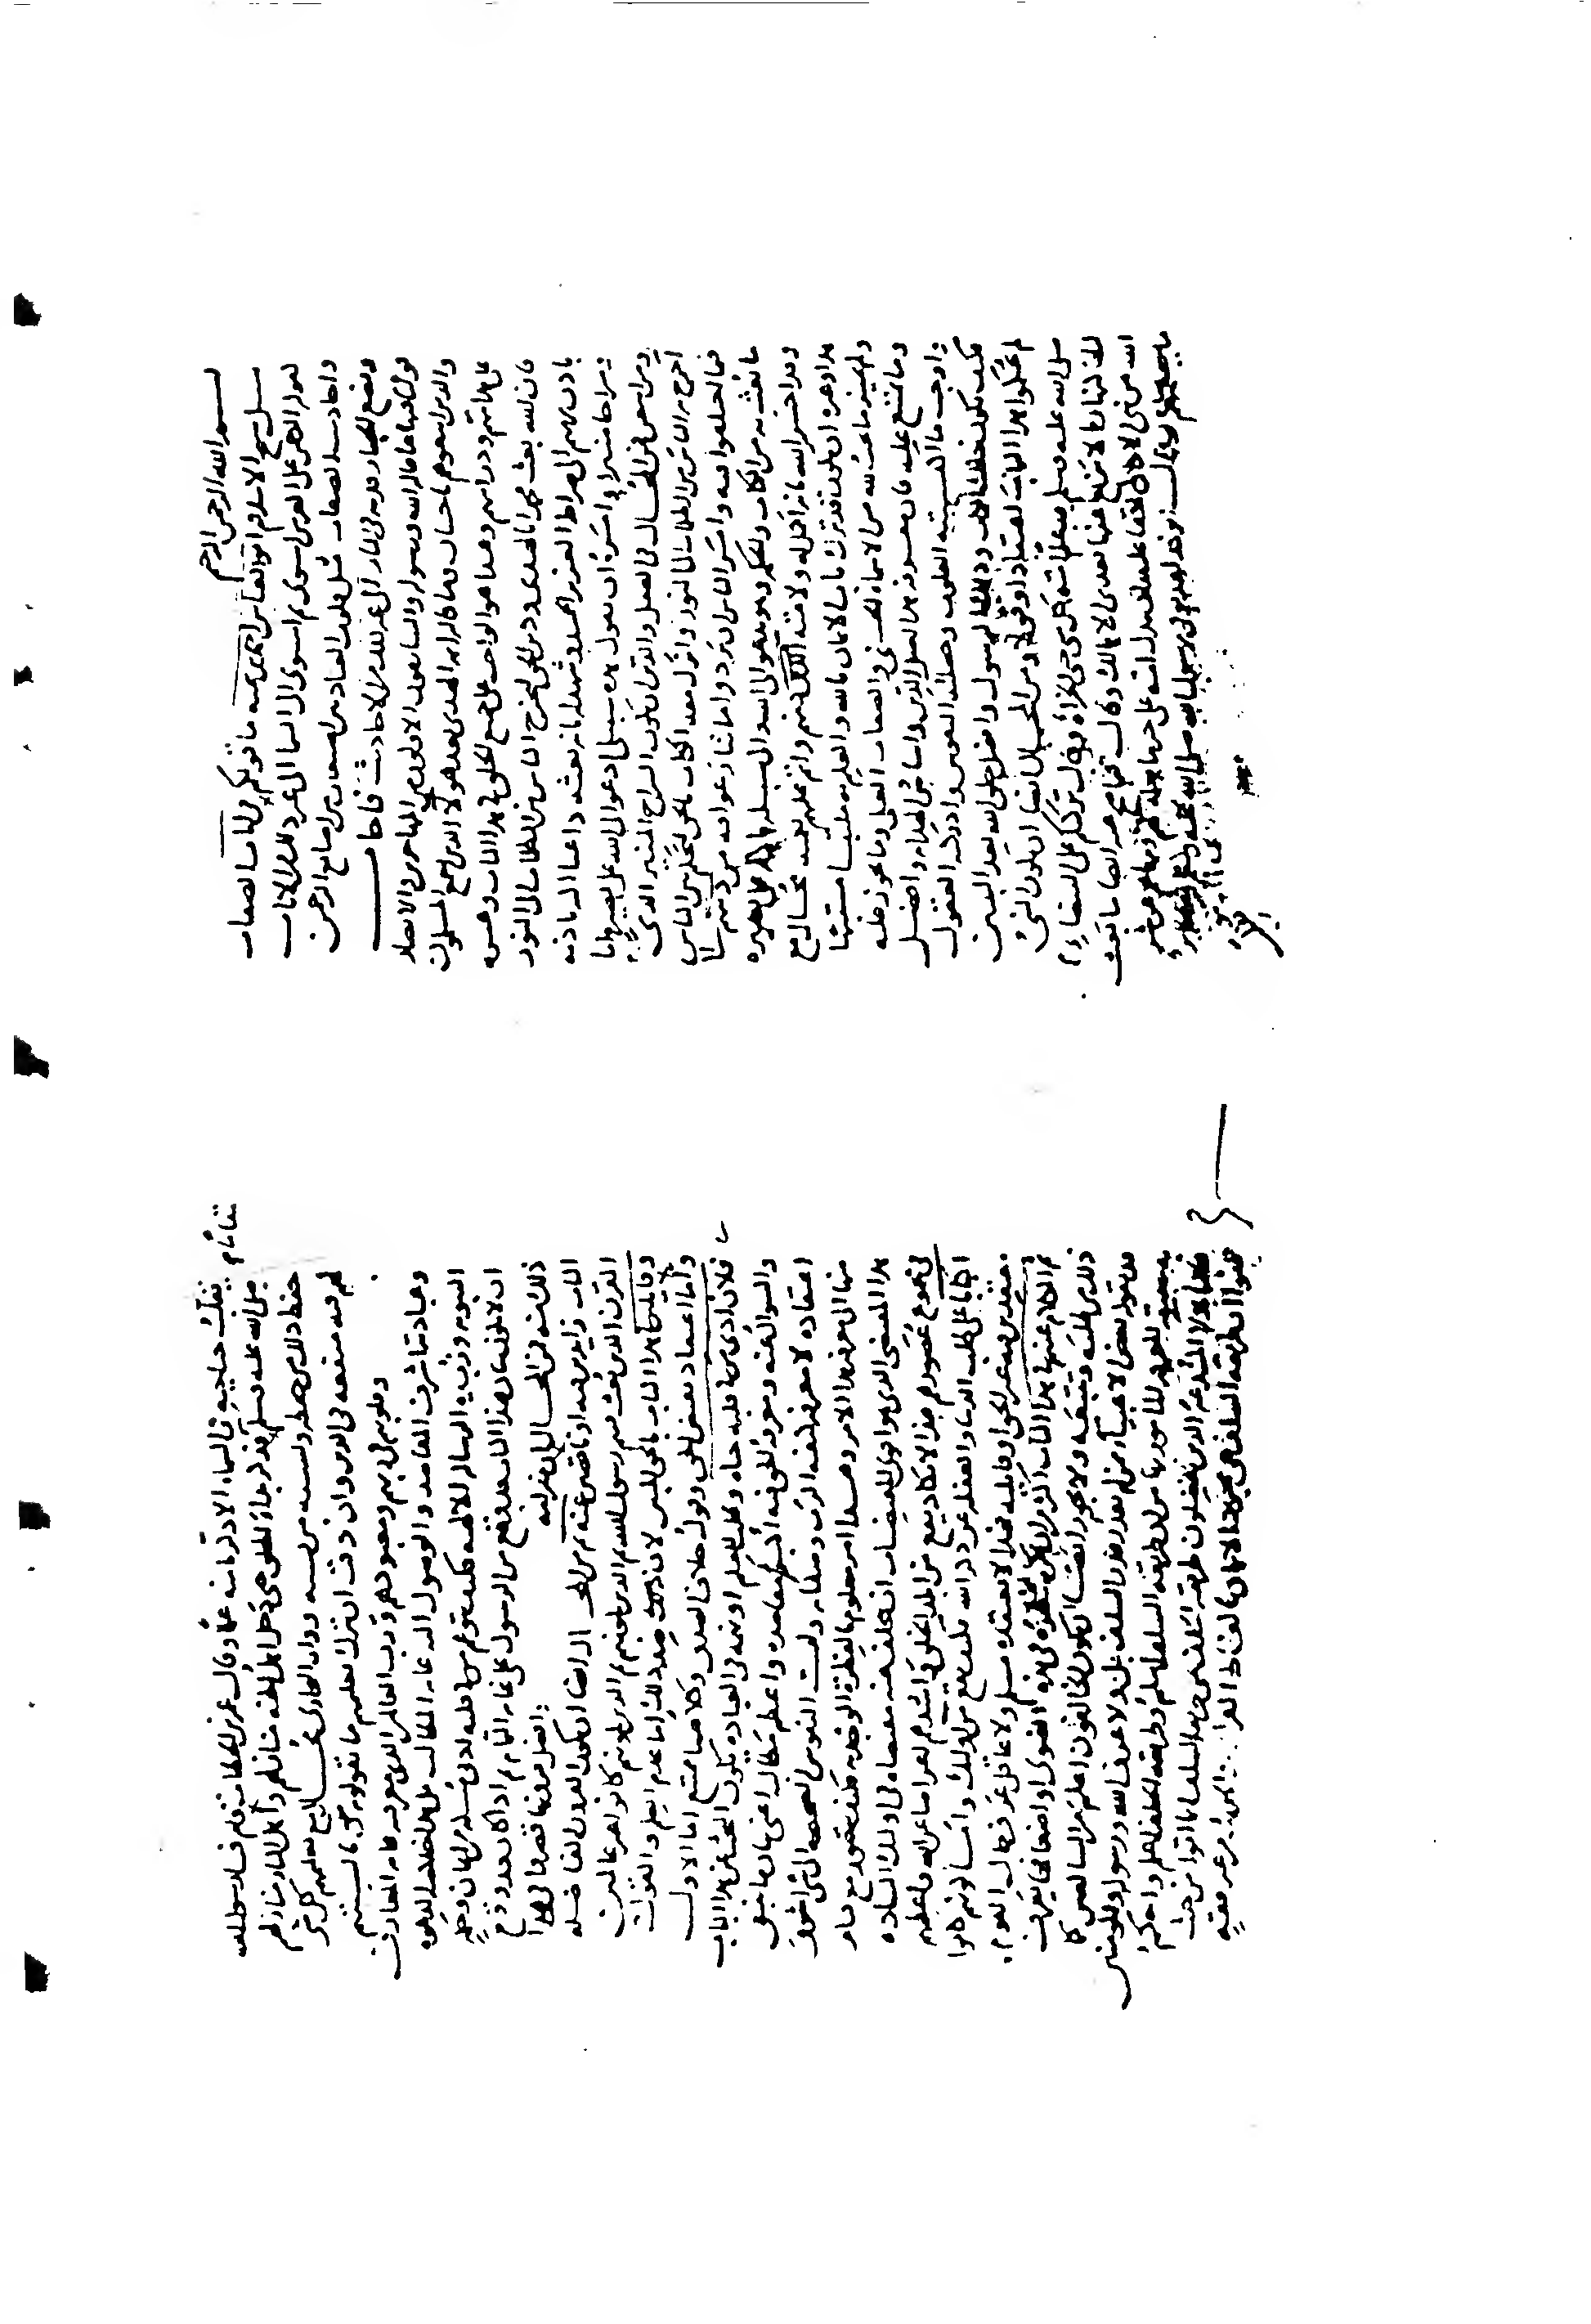 بسم الله الرحمن الرحيم
سئل شيخ الاسلام ابو العباس احمد بن تيميه ما قولكم في ايات الصفات
كقوله الرحمن على العرش استوى ثم استوى الى السما الى غير ذلك من الايات
واحاديث الصفات مثل قلوب العباد بين اصبعين من اصابع الرحمن
ويضع الجبار قدمه في النار الى غير ذلك من الاحاديث فاجاب
قولنا فيها ما قاله الله ورسوله والسابقون الاولون من المهاجرين والانصار
والذين اتبعوهم باحسان وما قاله ايمه الهدى بعد هولا الذين اجمع المسلمون
على هدايتهم ودرايتهم وهذا هو الواجب على جميع الخلق في هذا الباب وغيره
فان الله بعث محمدا بالهدى ودين الحق ليخرج الناس من الظلمات الى النور
باذن ربهم الى صراط العزيز الحميد وشهد له بانه بعثه داعيا اليه باذنه
وسراجا منيرا وامره ان يقول هذه سبيلي ادعوا الى الله على بصيره انا
ومن اتبعني فمن المحال في العقل والدين ان يكون السراج المنير الذي
اخرج به الناس من الظلمات الى النور وانزل معه الكتاب بالحق ليحكم بين الناس
فيما اختلفوا فيه وامر الناس ان يردوا ما تنازعوا فيه من دينهم الى
ما بعث به من الكتاب والحكمه وهو يدعو الى الله والى سبيله على بصيره
وقد اخبر الله بانه اكمل له ولامته دينهم واتم عليهم نعمته محال مع
هذا وغيره ان يكون قد ترك باب الايمان بالله والعلم به ملتبسا مشتبها
ولم يميز ما يجب لله من الاسماء الحسنى والصفات العلى وما يجوز عليه
وما يمتنع عليه فان معرفه هذا اصل الدين واساس الهدايه وافضل
واوجب ما اكتسبته القلوب وحصلته النفوس وادركته العقول
فكيف يكون ذلك الكتاب وذلك الرسول وافضل خلق الله بعد النبيين
لم يحكموا هذا الباب اعتقادا وقولا ومن المحال ايضا ان يكون النبي
صلى الله عليه وسلم قد علم امته كل شي حتى الخراءه وقال تركتكم على البيضاء
ليلها كنهارها لا يزيغ عنها بعدي الا هالك وقال فيما صح عنه ايضا ما بعث
الله من نبي الا كان حقا عليه ان يدل امته على خير ما يعلمه لهم وينهاهم عن شر
ما يعلمه لهم وقال ابو ذر لقد توفي رسول الله صلى الله عليه وسلم وما طاير
يقلب جناحيه في السماء الا ذكر لنا منه علما وقال عمر بن الخطاب قام فينا رسول الله
صلى الله عليه وسلم مقاما فذكر بدأ الخلق حتى دخل اهل الجنه منازلهم واهل النار منازلهم
حفظ ذلك من حفظه ونسيه من نسيه رواه البخاري محال مع تعليمهم كل شي
لهم فيه منفعه في الدين وان دقت ان يترك تعليمهم ما يقولونه بالسنتهم
وقلوبهم في ربهم ومعبودهم ورب العالمين الذي معرفته غايه المعارف
وعبادته اشرف المقاصد والوصول اليه غايه المطالب بل هذا خلاصه الدعوه
النبويه وزبده الرساله الالهيه فكيف يتوهم من في قلبه ادنى مسكه من ايمان وحكمه
ان لا يكون بيان هذا الباب قد وقع من الرسول على غايه التمام ثم اذا كان قد وقع
ذلك منه فمن المحال ان خير امته وافضل قرونها قصروا في هذا
الباب زايدين فيه او ناقصين عنه ثم من المحال ايضا ان تكون القرون الفاضله
القرن الذي بعث فيهم رسول الله ثم الذين يلونهم ثم الذين يلونهم كانوا غير عالمين
وقايلين في هذا الباب بالحق المبين لان ضد ذلك اما عدم العلم والقول
واما اعتقاد نقيض الحق وقول خلاف الصدق وكلاهما ممتنع اما الاول
فلان من في قلبه ادنى حياه وطلب للعلم او نهمه في العباده يكون البحث عن هذا الباب
والسوال عنه ومعرفه الحق فيه اكبر مقاصده واعظم مطالبه اعني بيان ما ينبغي
اعتقاده لا معرفه كيفيه الرب وصفاته وليست النفوس الصحيحه الى شي اشوق
منها الى معرفه هذا الامر وهذا امر معلوم بالفطره الوجديه فكيف يتصور مع قيام
هذا المقتضى الذي هو اقوى المقتضيات ان يتخلف عنه مقتضاه في اوليك الساده
في مجموع عصورهم هذا لا يكاد يقع في ابلد الخلق واشدهم اعراضا عن الله واعظمهم
اكبابا على طلب الدنيا والغفله عن ذكر الله فكيف يقع من اوليك واما كونهم كانوا
معتقدين فيه غير الحق او قايليه فهذا لا يعتقده مسلم ولا عاقل عرف حال القوم
ثم الكلام عنهم في هذا الباب اكثر من ان يمكن سطره في هذه الفتوى او اضعافها يعرف
ذلك من طلبه وتتبعه ولا يجوز ايضا ان يكون الخالفون اعلم من السالفين كما
قد يقوله بعض الاغبياء ممن لم يقدر قدر السلف بل ولا عرف الله ورسوله والمومنين
به حقيقه المعرفه المامور بها من ان طريقه السلف اسلم وطريقه الخلف اعلم واحكم
فان هولاء المبتدعه الذين يفضلون طريقه الخلف على طريقه السلف انما اتوا من حيث
ظنوا ان طريقه السلف هي مجرد الايمان بالفاظ القران من غير فقه